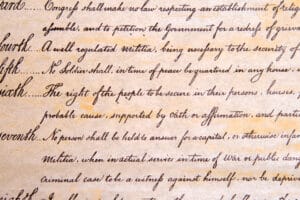 Congress shall make no law respecting an establishment of relig
assemble, and to petition the Government for a redress of grieva
ourth..... A well regulated Militia, being necessary to the security of
ifth..... No Soldier shall, in time of peace be quartered in any house
ixth..... The right of the people to be secure in their persons, houses, p
probable cause, supported by Oath or affirmation, and partic
eventh. No person shall be held to answer for a capital, or otherwise infam
Militia, when in actual service in time of War or public dan
criminal case to be a witness against himself, nor be depriv